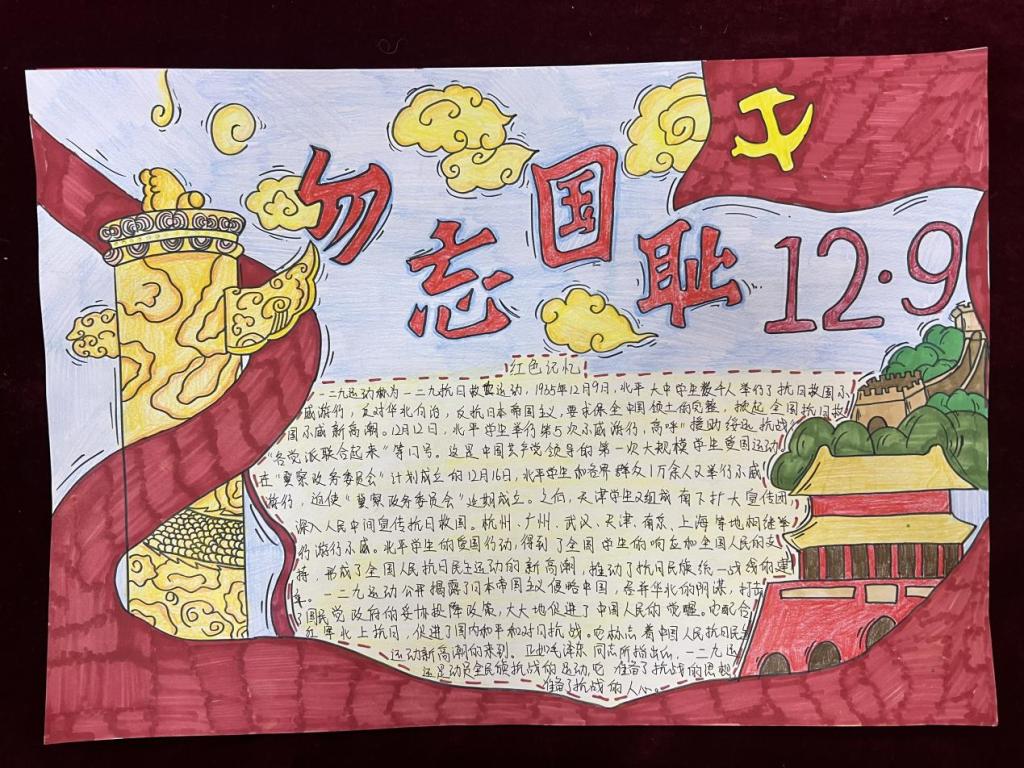 勿忘国耻
12·9
红色记忆
一二九运动称为一二九抗日救国运动，1935年12月9日，北平大中学生数千人举行了抗日救国示
威游行，反对华北自治，反抗日本帝国主义，要求保全中国领土的完整，掀起全国抗日救
国示威新高潮。12月12日，北平学生举行第5次示威游行，高呼"援助绥远抗战"
"各党派联合起来"等口号。这是中国共产党领导的第一次大规模学生爱国运动。
在"冀察政务委员会"计划成立的12月16日，北平学生和各界群众1万余人又举行示威
游行，迫使"冀察政务委员会"延期成立。之后，天津学生又组成南下扩大宣传团，
深入人民中间宣传抗日救国。杭州、广州、武汉、天津、南京、上海等地相继举
行游行示威。北平学生的爱国行动，得到了全国学生的响应和全国人民的支
持，形成了全国人民抗日民主运动的新高潮，推动了抗日民族统一战线的建
一二九运动公开揭露了日本帝国主义侵略中国，吞并华北的阴谋，打击
了国民党政府的妥协投降政策，大大地促进了中国人民的觉醒。它配合
红军北上抗日，促进了国内和平和对日抗战。它标志着中国人民抗日民
运动新高潮的来到。正如毛泽东同志所指出的，一二九运
还是动员全民族抗战的运动，它准备了抗战的思想
准备了抗战的人心。